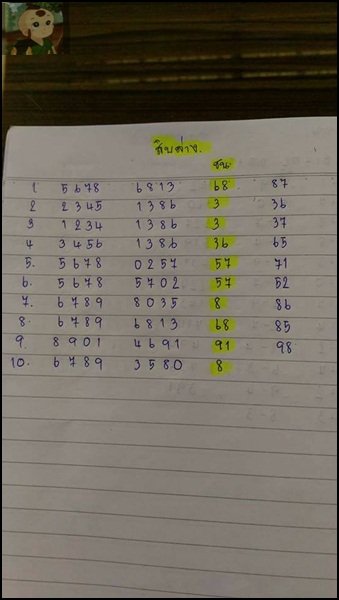 สิบล่าง.
ชน
1 5678 6813 68 87
2 2345 1386 3 36
3 1234 1386 3 37
4 3456 1386 36 65
5. 5678 0257 57 71
6. 5678 5702 57 52
7. 6789 8035 8 86
8. 6789 6813 68 85
9. 8901 4691 91 98
10. 6789 3580 8